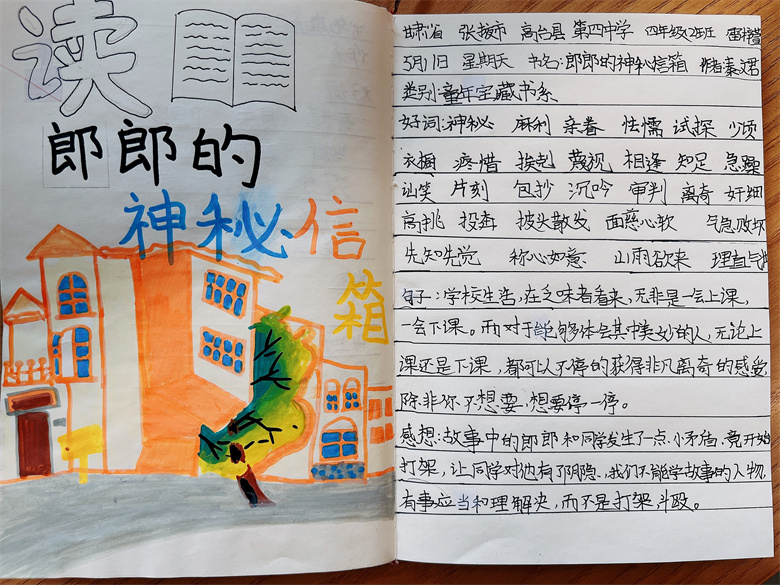 读
郎郎的
神秘信
箱
甘肃省 张掖市 高台县 第四中学 四年级2班
5月11日 星期天 书名:郎郎的神秘信箱 作者秦文君
类别:童年宝藏书系
好词:神秘 麻利 亲眷 怯懦 试探 少顷
衣橱 疼惜 挨起 蔑视 相逢 知足 急躁
讪笑 片刻 包抄 沉吟 审判 离奇 奸细
高挑 投奔 披头散发 面慈心软 气急败坏
先知先觉 称心如意 山雨欲来 理直气壮
句子:学校生活,在乏味者看来,无非是一会上课,
一会下课。而对于能够体会其中美妙的人,无论上
课还是下课,都可以不停的获得非凡离奇的感受
除非你不想要,想要停一停。
感想:故事中的郎郎和同学发生了一点小矛盾,竟开始
打架,让同学对他有了阴隐,我们不能学故事的人物
有事应当和理解决,而不是打架斗殴。